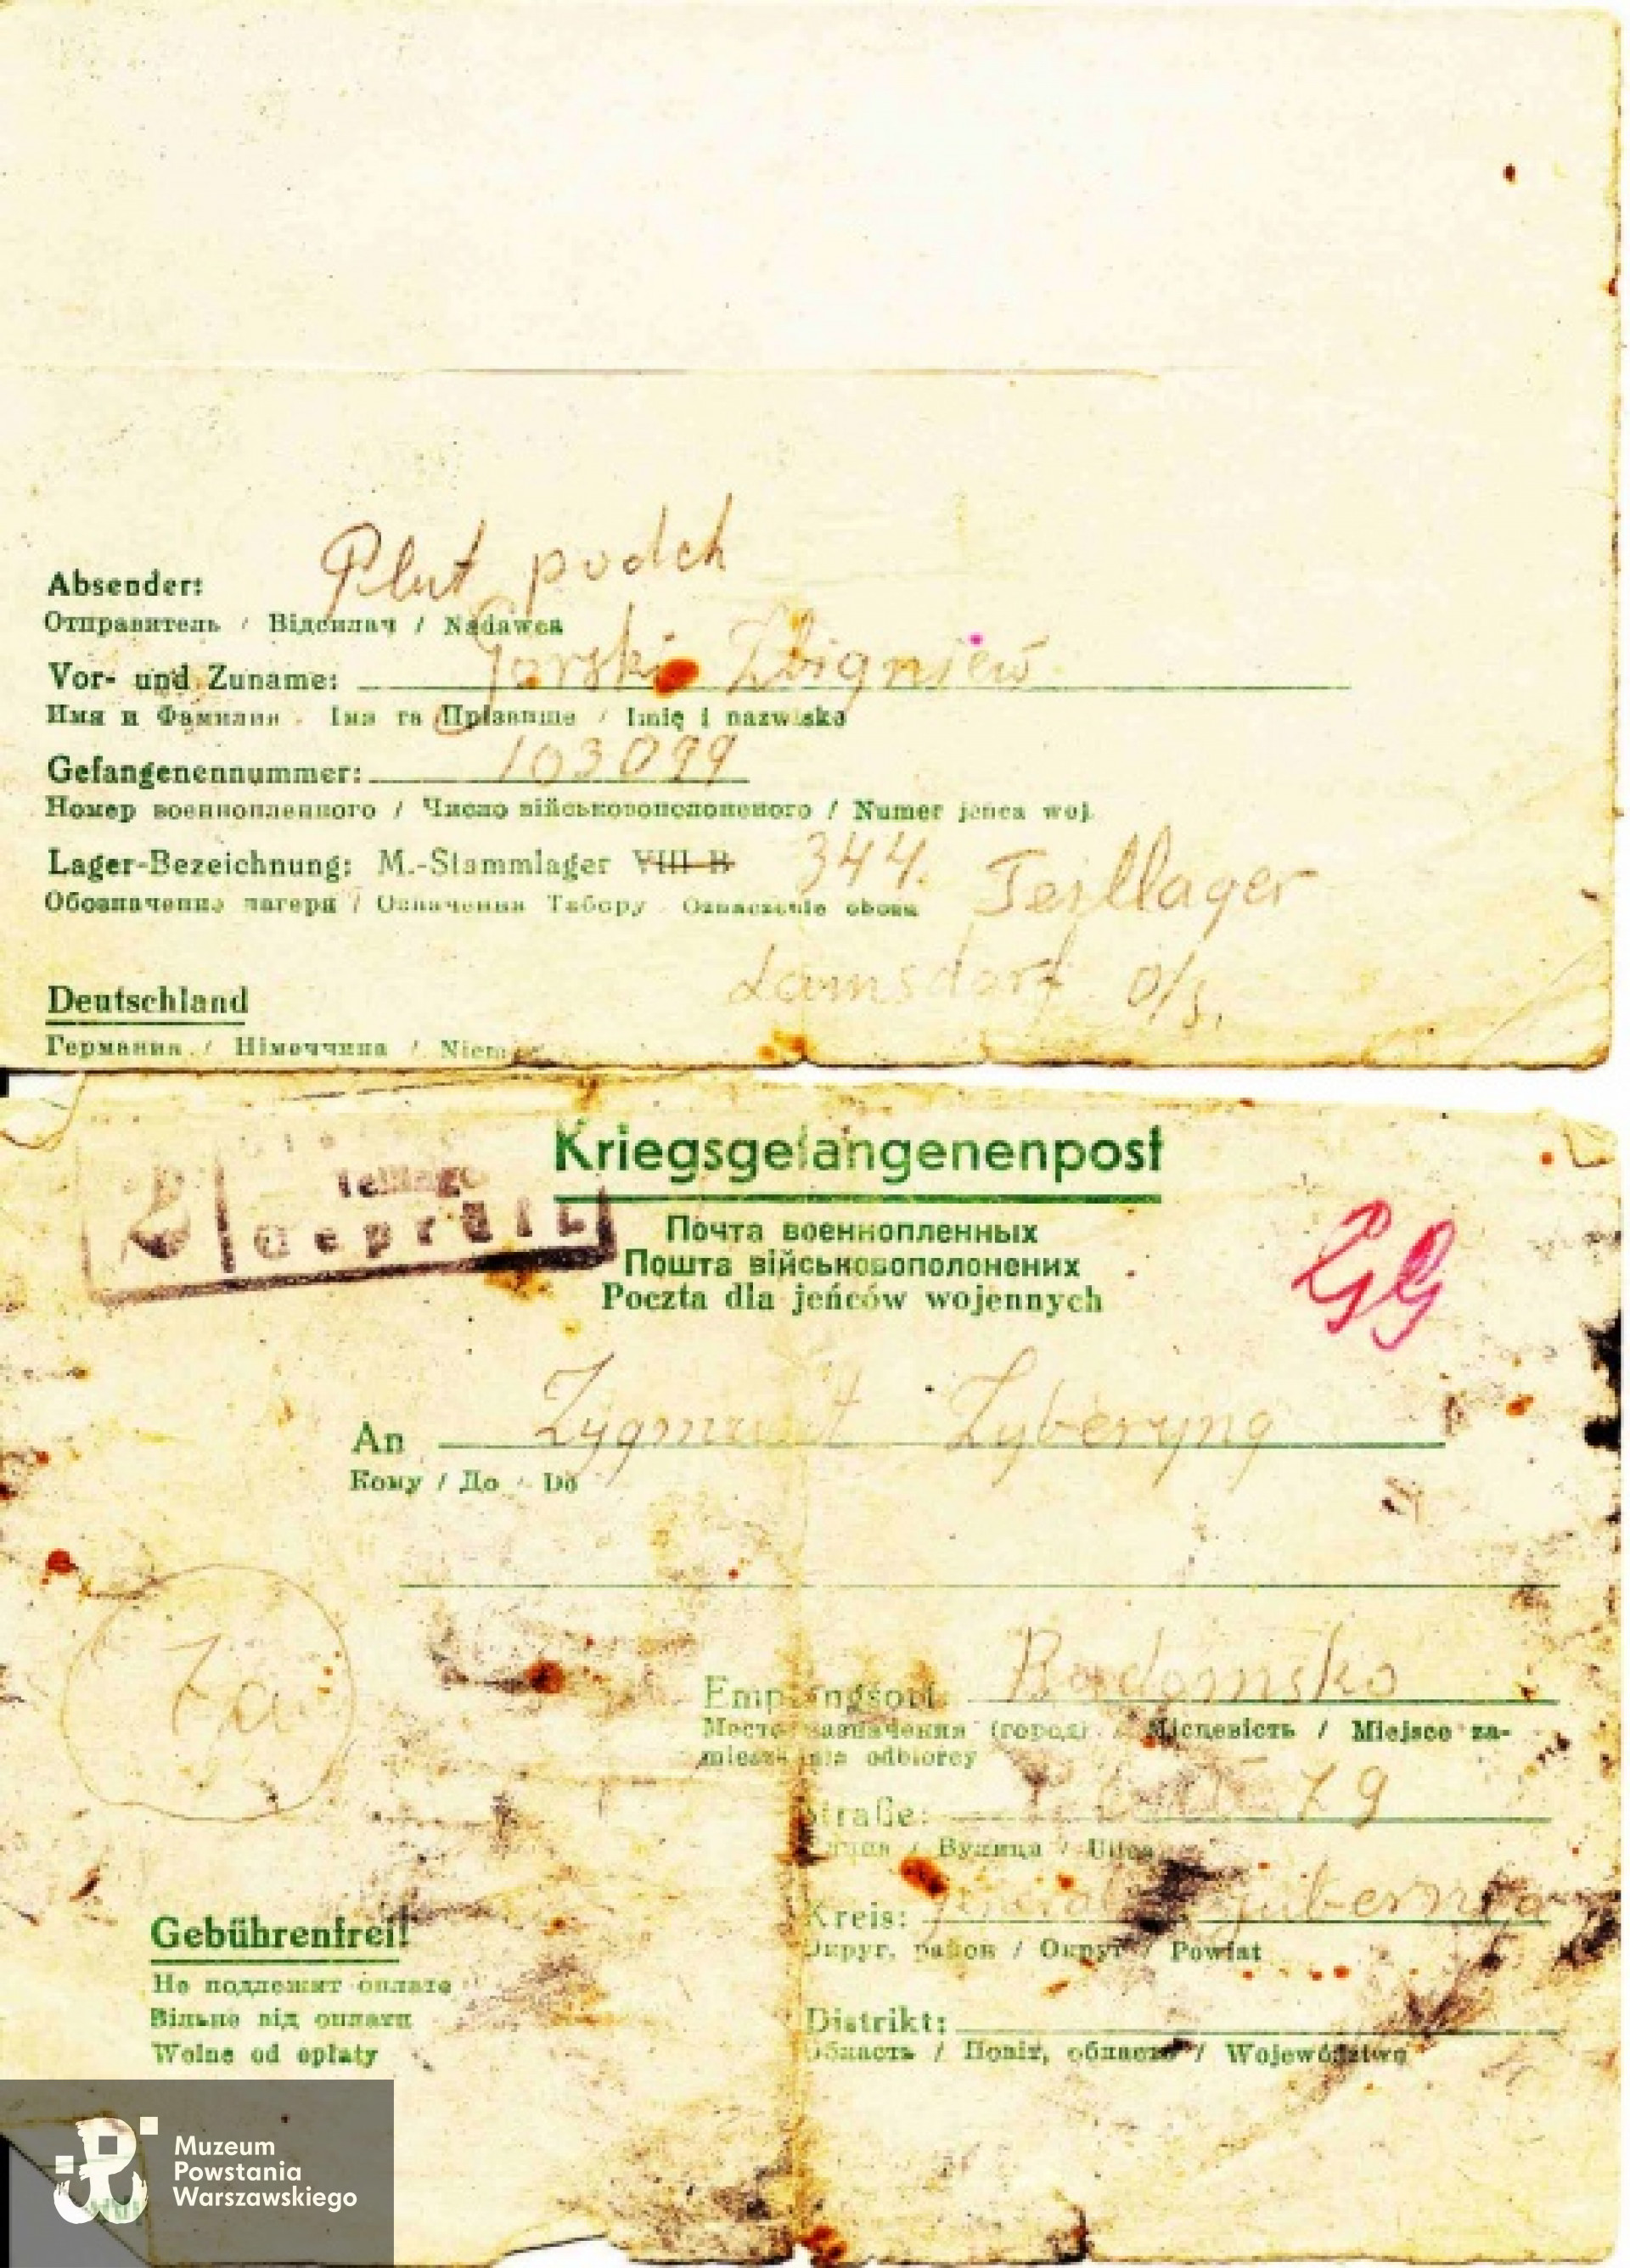 Plut podch
Absender:
Отправитель / Відсилач / Nadawca
Gorski Zbigniew
Vor- und Zuname:
Имя и Фамилия / Імя та Прізвище / Imię i nazwisko
103099
Gefangenennummer:
Номер военнопленного / Число військовополоненого / Numer jeńca woj.
Lager-Bezeichnung: M.-Stammlager VIII B 344. Teillager
Обозначение лагеря / Означення Табору / Oznaczenie obozu
Lamsdorf O/S.
Deutschland
Германия / Німеччина
Kriegsgefangenenpost
Geprüft
Почта военнопленных
Пошта військовополонених
Poczta dla jeńców wojennych
GG
An Zygmunt Zyberyng
Кому / До / Do
7a
Empfangsort: Radomsko
Место назначения (город) / Місцевість / Miejsce za-
mieszkania odbiorcy
Straße: 79
Вулиця / Ulica
Kreis: gubernia
Округ, район / Округ / Powiat
Gebührenfrei!
Не подлежит оплате
Вільне від оплати
Wolne od opłaty
Distrikt:
Область / Повіт, область / Województwo
Muzeum
Powstania
Warszawskiego